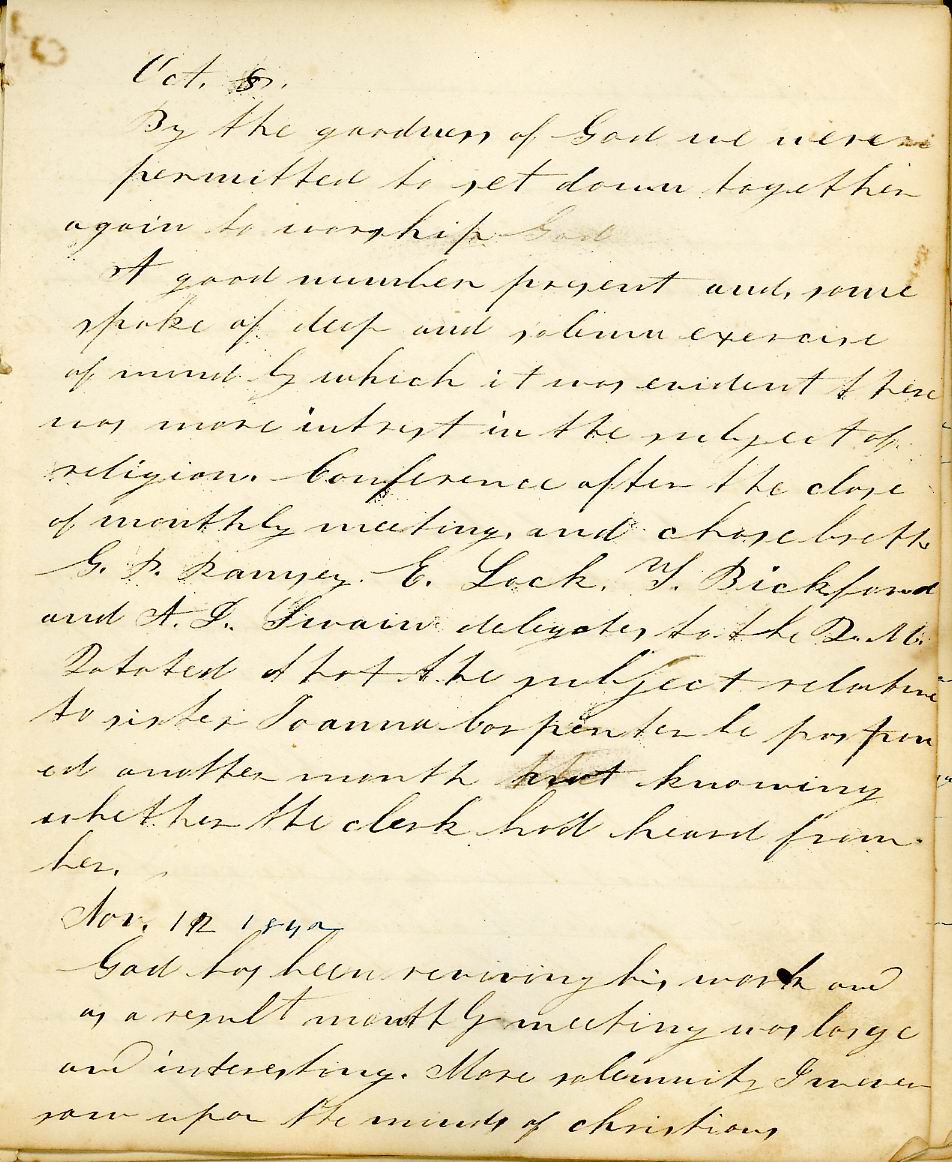 Oct. 8.
By the goodness of God we were
permitted to set down together
again to worship God
A good number present and, some
spoke of deep and solemn exercise
of mind by which it was evident there
was more intrest in the subject of
religion. Conference after the close
of monthly meeting, and chose breth.
G. P. Ramsey. E. Lock. Y. Bickford
and A. D. Swain delegates to the Q. M.
that the subject relative
to sister Joanna Carpenter be pospon
ed another month not knowing
whether the clerk had heard from
her.
Nov. 12 1842
God has been reviving his work and
as a result monthly meeting was large
and interesting. More solemnity I never
saw upon the minds of christians